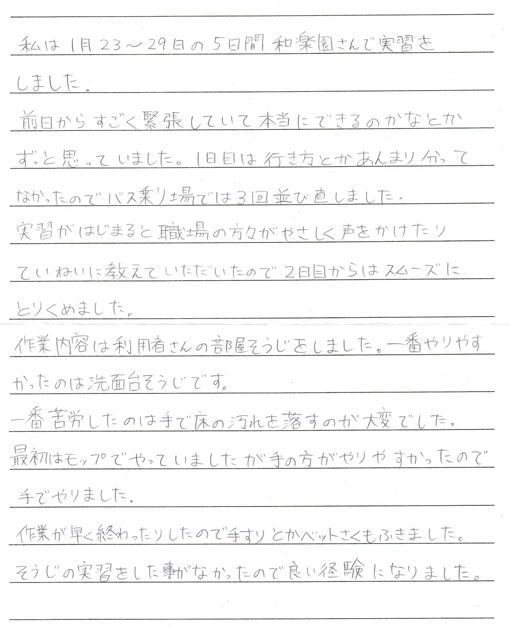 私は1月23～29日の5日間和楽園さんで実習を
しました.
前日からすごく緊張していて本当にできるのかなとか
ずっと思っていました。1日目は行き方とかあんまり分って
なかったのでバス乗り場では3回並び直しました.
実習がはじまると職場の方々がやさしく声をかけたり
ていねいに教えていただいたので2日目からはスムーズに
とりくめました。
作業内容は利用者さんの部屋そうじをしました。一番やりやす
かったのは洗面台そうじです。
一番苦労したのは手で床の汚れを落すのが大変でした.
最初はモップでやっていましたが手の方がやりやすかったので
手でやりました.
作業が早く終わったりしたので手すりとかベットさくもふきました。
そうじの実習をした事がなかったので良い経験になりました。